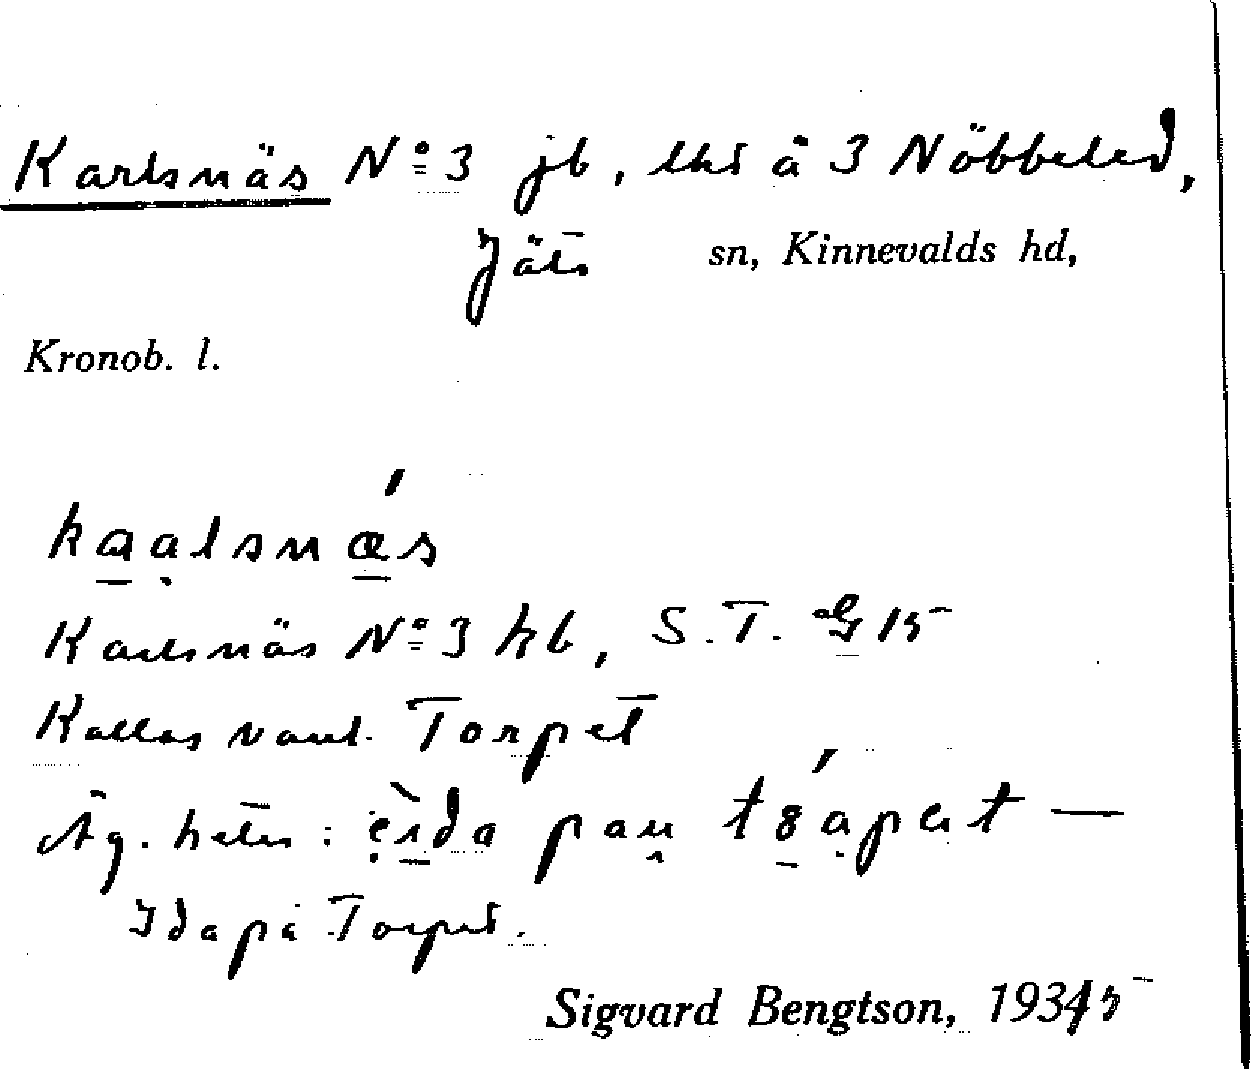 Karlsnäs Nº 3 jb, lht å 3 Nöbbeled,
Jäts sn, Kinnevalds hd,
Kronob. l.
kaalsnæs
Karlsnäs Nº 3 hb, S. T. G 15
Kallas vanl. Torpet
Äg. heter: pau —
Ida på Torpet.
Sigvard Bengtson, 1935